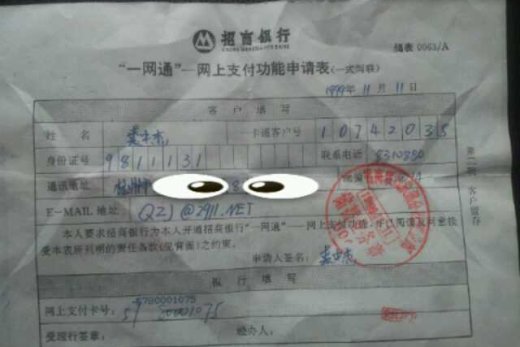 招商银行
CHINA MERCHANTS BANK
储表 0063/A
“一网通”—网上支付功能申请表(一式两联)
1999年11月11日
客户填写
姓名
卡通客户号 10742035
身份证号 9811131
联系电话
通讯地址 杭州
E-MAIL 地址 QZJ@7911.NET
本人要求招商银行为本人开通招商银行“一网通”—网上支付功能,并已阅读及同意接
受本表所列明的责任条款(见背面)之约束。
申请人签名:
银行填写
5780001075
网上支付卡号: 57 80001075
受理行签章: 经办人:
客户留存